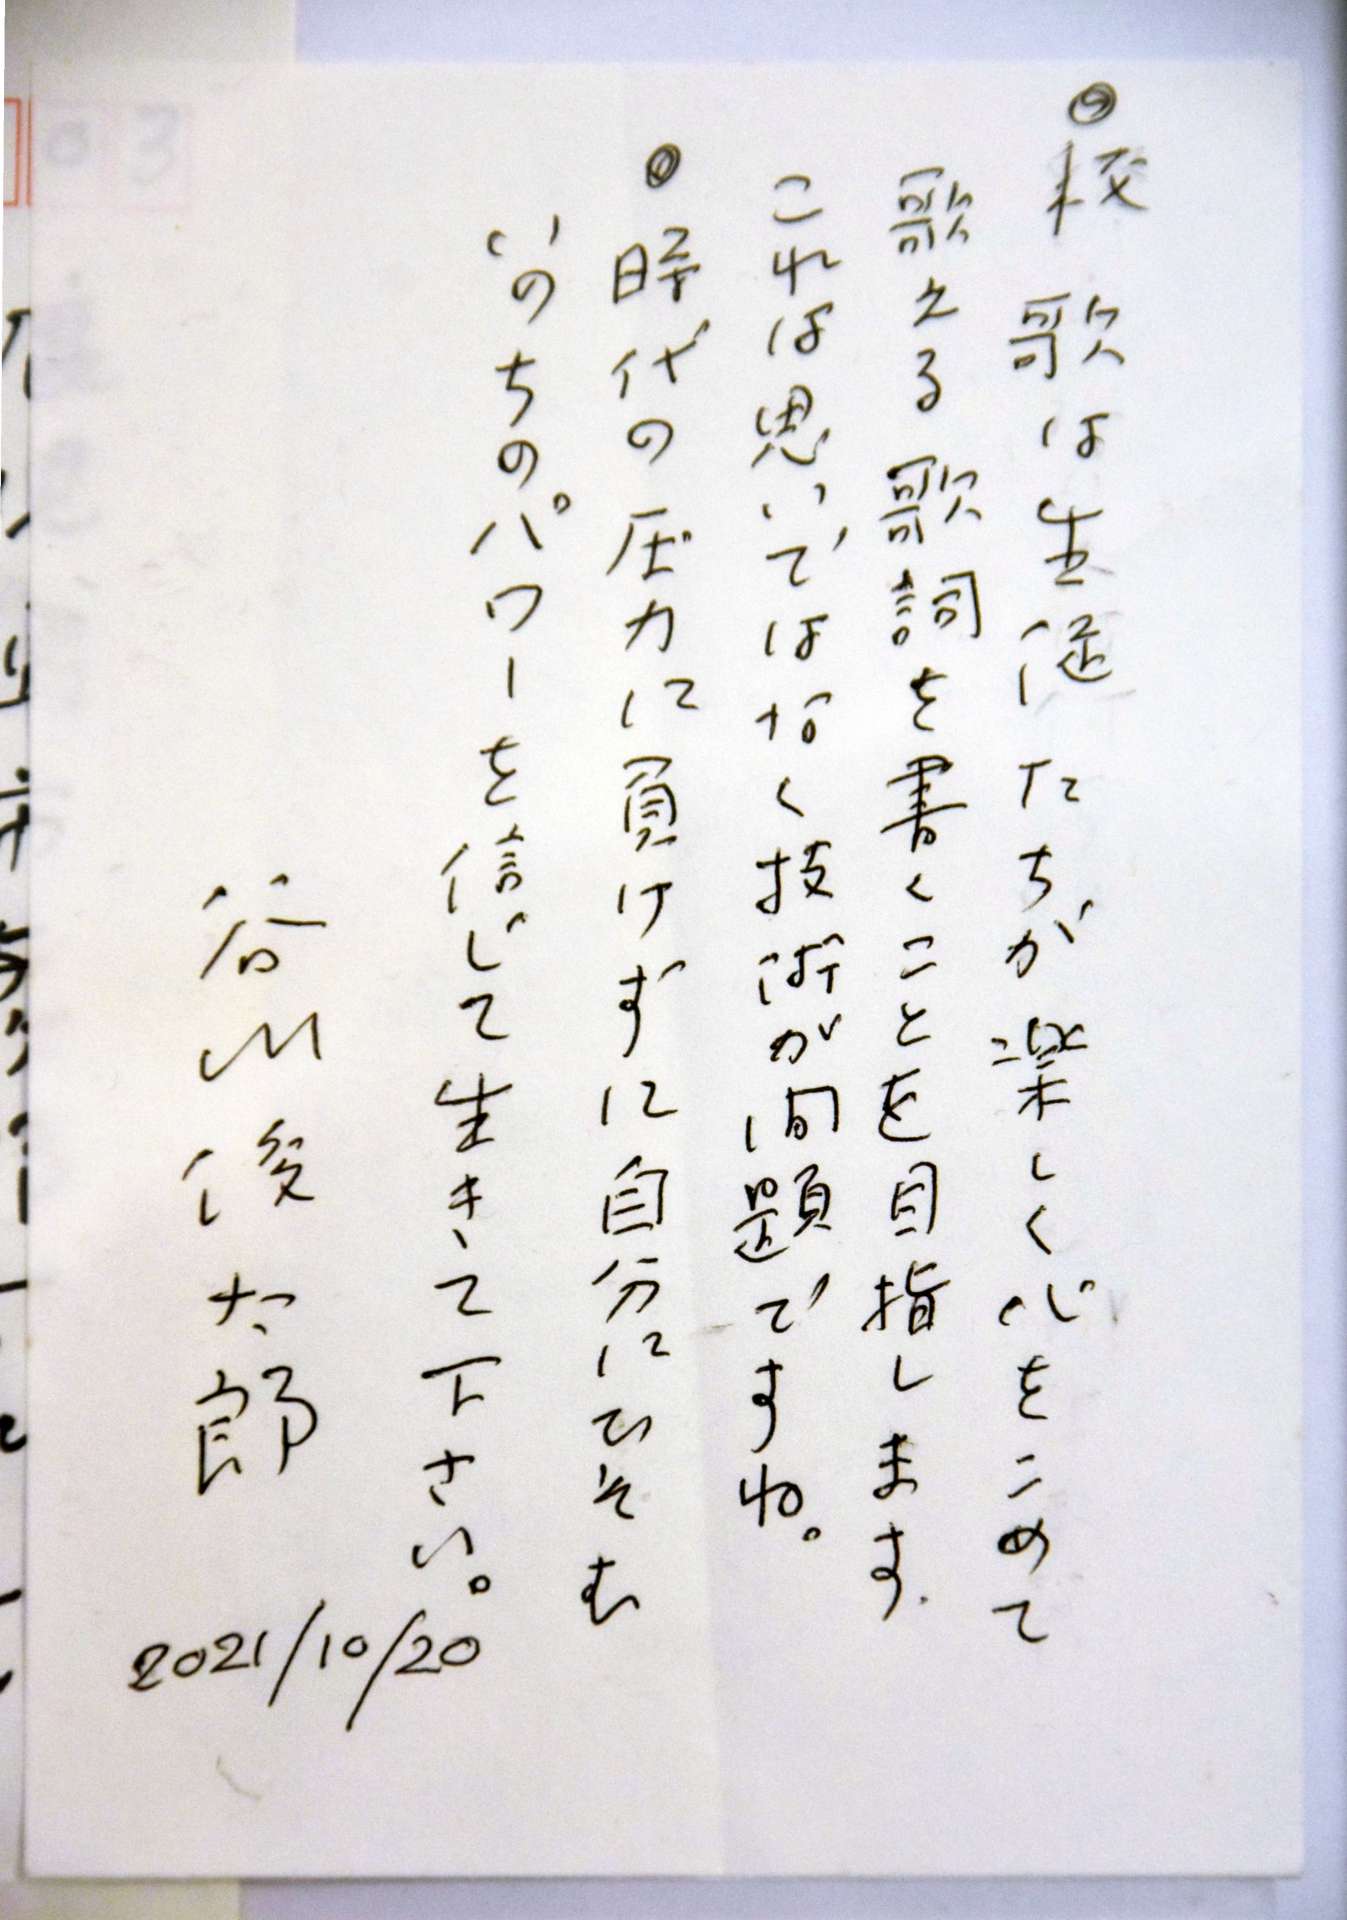 ◎校歌は生徒たちが楽しく心をこめて
歌える歌詞を書くことを目指します.
これは思いではなく技術が問題ですね。
◎時代の圧力に負けずに自分にひそむ
いのちのパワーを信じて生きて下さい。
谷川俊太郎
2021/10/20